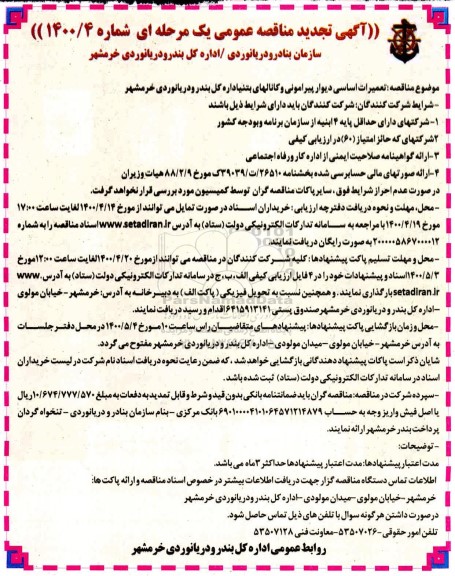 ((آگهی تجدید مناقصه عمومی یک مرحله ای شماره ۱۴۰۰/۴))
سازمان بنادر و دریانوردی / اداره کل بندر و دریانوردی خرمشهر
موضوع مناقصه: تعمیرات اساسی دیوار پیرامونی و کانالهای بتنی اداره کل بندر و دریانوردی خرمشهر
-شرایط شرکت کنندگان: شرکت کنندگان باید دارای شرایط ذیل باشند
۱-شرکتهای دارای حداقل پایه ۴ ابنیه از سازمان برنامه وبودجه کشور
۲شرکتهای که حائز امتیاز (۶۰) در ارزیابی کیفی
۳-ارائه گواهینامه صلاحیت ایمنی از اداره کار ورفاه اجتماعی
۴-ارائه صورتهای مالی حسابرسی شده بخشنامه ۲۶۵۱۰/ت/۳۹۰۳۹ک مورخ ۸۸/۲/۹ هیات وزیران
در صورت عدم احراز شرایط فوق ، سایر پاکات مناقصه گران توسط کمیسیون مورد بررسی قرار نخواهد گرفت.
-محل، مهلت و نحوه دریافت دفترچه ارزیابی : خریداران اسناد در صورت تمایل می توانند از مورخ ۱۴۰۰/۴/۱۴ لغایت ساعت ۱۷:۰۰
مورخ ۱۴۰۰/۴/۱۹ با مراجعه به سامانه تدارکات الکترونیکی دولت (ستاد) به آدرس www.setadiran.ir اسناد مناقصه را به شماره
۲۰۰۰۰۰۵۸۶۷۰۰۰۰۱۲ به صورت رایگان دریافت نمایند.
-محل و مهلت تسلیم پاکت پیشنهادها: کلیه شرکت کنندگان در مناقصه می توانند از مورخ ۱۴۰۰/۴/۲۰ لغایت ساعت ۱۲:۰۰ مورخ
۱۴۰۰/۵/۳ اسناد و پیشنهادات خود را در ۴ فایل ارزیابی کیفی الف، ب، ج در سامانه تدارکات الکترونیکی دولت (ستاد) به آدرس www.
setadiran.ir بارگذاری نمایند . و همچنین نسبت به تحویل فیزیکی ( پاکت الف ) به دبیرخانه به آدرس: خرمشهر - خیابان مولوی
-اداره کل بندر و دریانوردی خرمشهر صندوق پستی ۶۴۱۵۹۱۳۱۴۱ اقدام و رسید دریافت نمایند.
-محل وزمان بازگشایی پاکت پیشنهادها: پیشنهادهای متقاضیان راس ساعت ۱۰ مورخ ۱۴۰۰/۵/۴ در محل دفتر جلسات
به آدرس خرمشهر - خیابان مولوی - میدان مولودی - اداره کل بندر و دریانوردی خرمشهر مفتوح می گردد.
شایان ذکر است پاکات پیشنهاد دهندگانی بازگشایی خواهد شد، که ضمن رعایت نحوه دریافت اسناد نام شرکت در لیست خریداران
اسناد در سامانه تدارکات الکترونیکی دولت (ستاد) ثبت شده باشد.
-سپرده شرکت در مناقصه: مناقصه گران باید ضمانتنامه بانکی بدون قید و شرط و قابل تمدید به دفعات به مبلغ ۱۰/۶۷۴/۷۷۷/۵۷۰ ریال
یا اصل فیش واریز وجه به حساب ۶۹۰۱۰۰۰۰۴۱۰۱۰۶۴۵۷۱۲۱۴۸۷۹ بانک مرکزی - بنام سازمان بنادر و دریانوردی - تنخواه گردان
پرداخت بندر خرمشهر ارائه نمایند.
- توضیحات:
مدت اعتبار پیشنهادها: مدت اعتبار پیشنهادها حداکثر ۳ ماه می باشد.
اطلاعات تماس دستگاه مناقصه گزار جهت دریافت اطلاعات بیشتر در خصوص اسناد مناقصه و ارائه پاکت ها:
خرمشهر - خیابان مولوی - میدان مولودی - اداره کل بندر و دریانوردی خرمشهر
درصورت داشتن هر گونه سوال با تلفن های ذیل تماس حاصل شود.
تلفن امور حقوقی -۵۳۵۰۷۰۲۶ -معاونت فنی ۵۳۵۰۷۱۲۸
روابط عمومی اداره کل بندر و دریانوردی خرمشهر